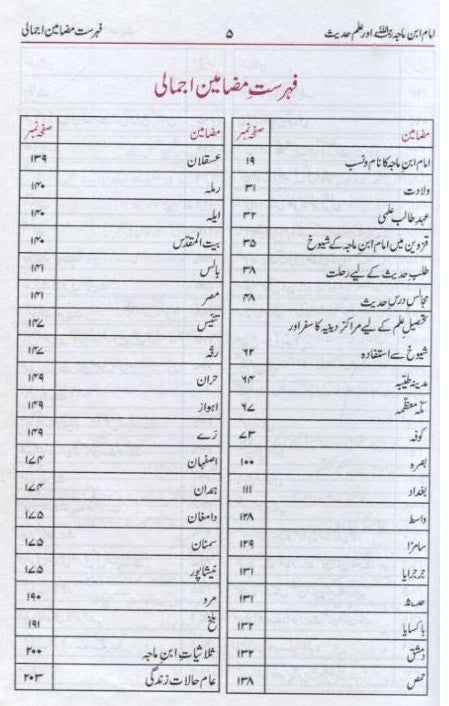 امام ابن ماجہ رحمۃ اللہ علیہ اور علم حدیث ۵ فہرست مضامین اجمالی
فہرستِ مضامین اجمالی
مضامین صفحہ نمبر
امام ابن ماجہ کا نام و نسب ۱۹
ولادت ۳۱
عہد طالب علمی ۳۲
قزوین میں امام ابن ماجہ کے شیوخ ۳۵
طلب حدیث کے لیے رحلت ۳۸
مجالس درس حدیث ۴۸
تحصیل علم کے لیے مراکز دینیہ کا سفر اور
شیوخ سے استفادہ ۶۲
مدینہ طیبہ ۶۴
مکہ معظمہ ۶۷
کوفہ ۷۳
بصرہ ۱۰۰
بغداد ۱۱۱
واسط ۱۲۸
سامرّا ۱۲۹
جرجرایا ۱۳۱
حدیثہ ۱۳۱
باکسایا ۱۳۲
دمشق ۱۳۲
حمص ۱۳۸
مضامین صفحہ نمبر
عسقلان ۱۳۹
رملہ ۱۴۰
ایلہ ۱۴۰
بیت المقدس ۱۴۰
بالس ۱۴۱
مصر ۱۴۱
تنیس ۱۴۷
رقہ ۱۴۷
حران ۱۴۹
اہواز ۱۴۹
رَے ۱۴۹
اصفہان ۱۷۴
ہمدان ۱۷۴
دامغان ۱۷۵
سمنان ۱۷۵
نیشاپور ۱۷۵
مرہ ۱۹۰
بلخ ۱۹۱
ثلاثیاتِ ابن ماجہ ۲۰۰
عام حالات زندگی ۲۰۳